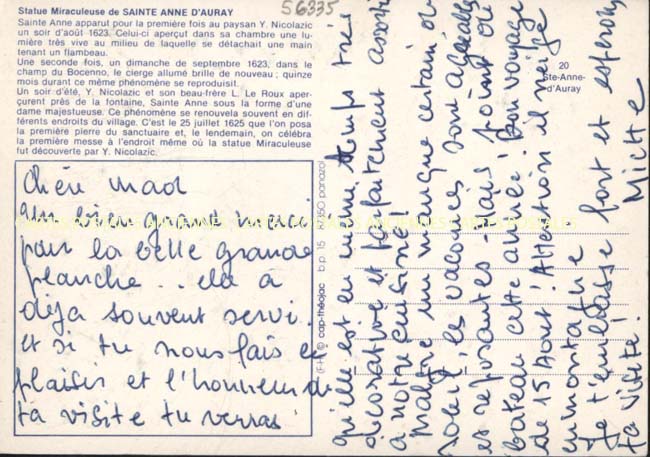 56335
Statue Miraculeuse de SAINTE ANNE D'AURAY
Sainte Anne apparut pour la première fois au paysan Y. Nicolazic
un soir d'août 1623. Celui-ci aperçut dans sa chambre une lu-
mière très vive au milieu de laquelle se détachait une main
tenant un flambeau.
Une seconde fois, un dimanche de septembre 1623, dans le
champ du Bocenno, le cierge allumé brille de nouveau ; quinze
mois durant ce même phénomène se reproduisit.
Un soir d'été, Y. Nicolazic et son beau-frère L. Le Roux aper-
çurent près de la fontaine, Sainte Anne sous la forme d'une
dame majestueuse. Ce phénomène se renouvela souvent en dif-
férents endroits du village. C'est le 25 juillet 1625 que l'on posa
la première pierre du sanctuaire et, le lendemain, on célébra
la première messe à l'endroit même où la statue Miraculeuse
fut découverte par Y. Nicolazic.
20
Ste-Anne-
d'Auray
Chère Mad
Un bien grand merci
pour la belle grande
planche .. elle a
déjà souvent servi.
et si tu nous fais le
plaisir et l'honneur de
ta visite tu verras
(F-H) © cap-théojac b.p. 15 87350 panazol
qu'elle est en même temps très
décorative et parfaitement assortie
à notre cuisine!
malgré un manque certain de
soleil, les vacances sont agréables
et reposantes - mais point de
bateau cette année! Bon voyage
de 15 Août! Attention il neige
en montagne
Je t'embrasse fort et espérons
ta visite! Michte